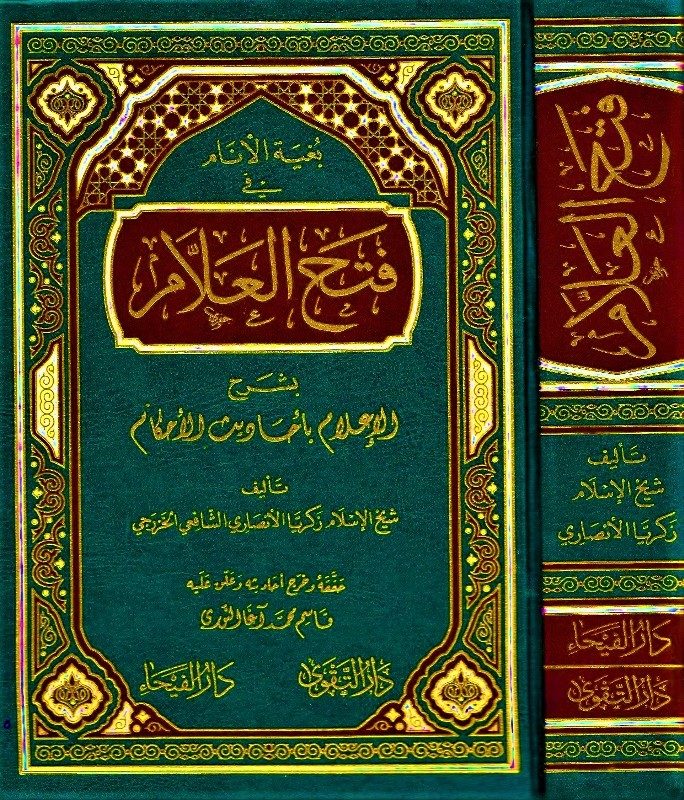 بُغية الأنام
في
فَتح العَلَّام
بشرح
الإعلام بأحاديث الأحكام
تأليف
شيخ الإسلام زكريا الأنصاري الشافعي الخزرجي
حققه وخرج أحاديثه وعلق عليه
قاسم محمد آغا النوري
دَارُ التَّقوى
دَارُ الفَيحَاء
فتح العلام
تأليف
شيخ الإسلام
زكريا الأنصاري
دَارُ الفَيحَاء
دَارُ التَّقوى